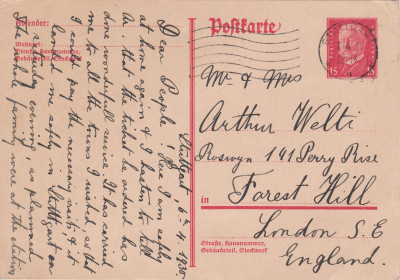 Postkarte
Absender:
Wohnort
Straße, Hausnummer,
Gebäudeteil, Stockwerk
15 15
Mr & Mrs
Arthur Welti
Roswyn 141 Perry Rise
in Forest Hill
London S. E
England.
Straße, Hausnummer,
Gebäudeteil, Stockwerk
Stuttgart, 4. 1930
Dear People! Here I am safely
at home again & I hasten to tell
you that the ticket he ordered has
done wonderful service. It has carried
me to all the towns I wished, so that
I could pay the necessary visits & it
landed me safely in Stuttgart on
evening as planned
The whole family were at the station